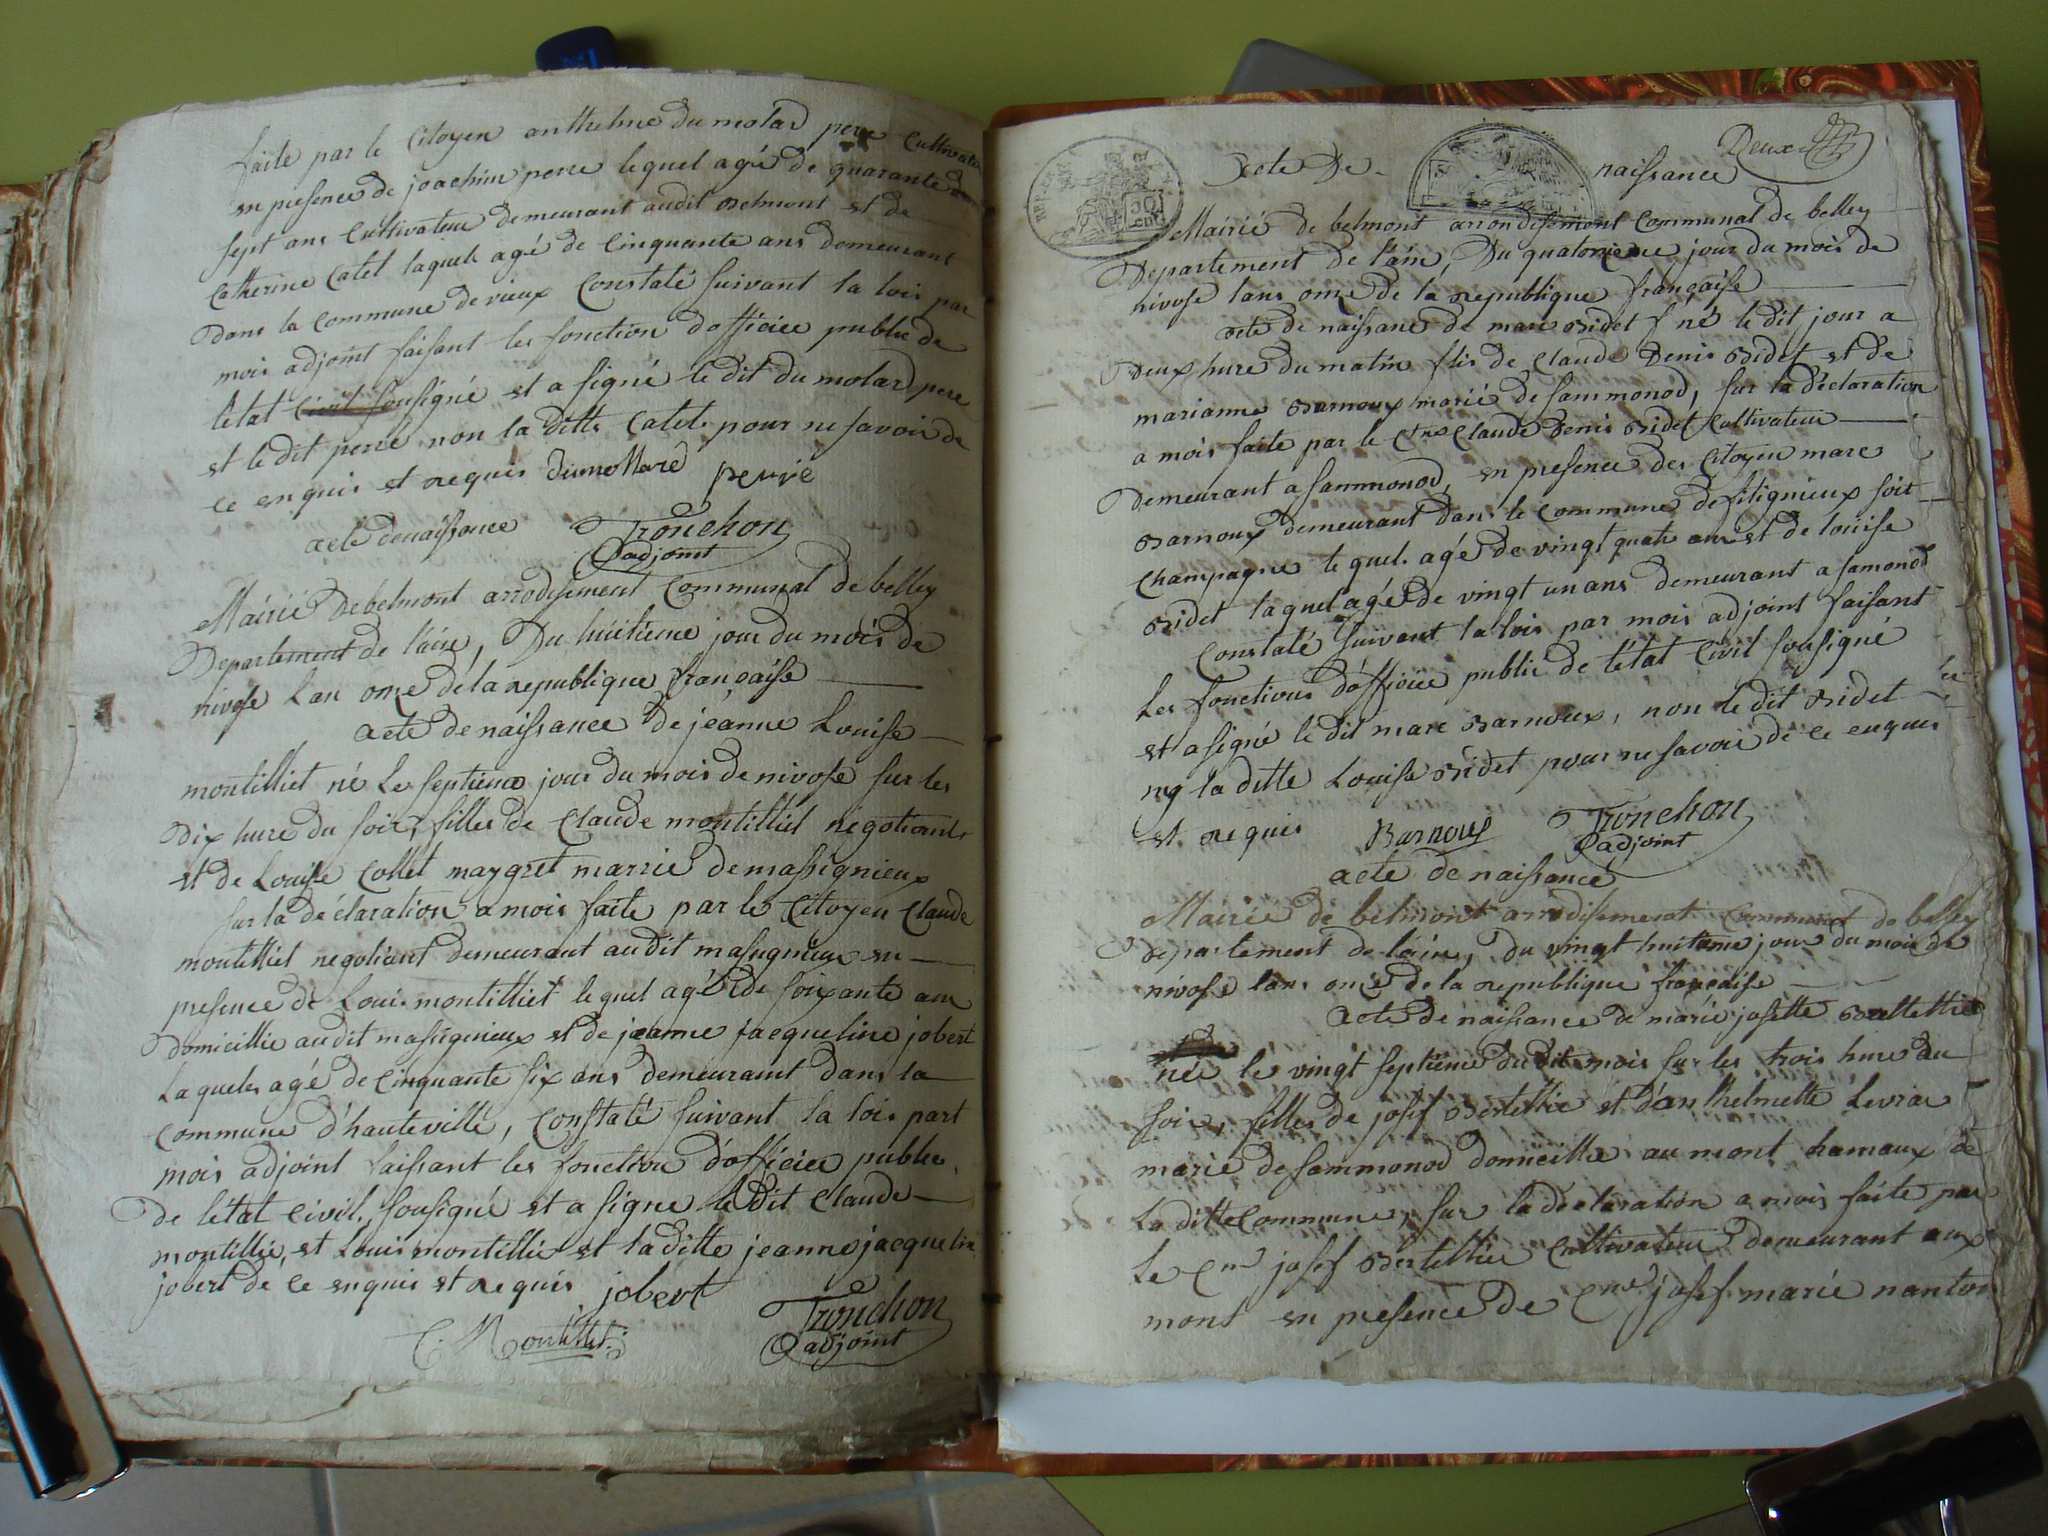 faite par le Citoyen anthelme du molar pere Cultivateur
en presence de joachim perre lequel agé de quarante
sept ans Cultivateur demeurant audit belmont et de
Catherine Catel laquele agé de Cinquante ans demeurant
dans la Commune de vieux Constaté suivant la lois par
mois adjoint faisant les fonction dofficiee public de
letat Civil sousigné et a signé le dit du molard pere
et le dit perré non la ditte Catel pour ne savoir de
ce enquis et requis Dumollard perré
acte de naissance Tronchon
adjoint
Mairié de belmont arrodisement Communal de belley
Departement de l'ain, Du huitieme jour du mois de
nivose Lan onze de la republique française
acte de naissance de jeanne Louise
montilliet né Le septieme jour du mois de nivose sur les
dix hure du soir, filles de Claude montilliet negotiant
et de Louise Collet maygret marrie de massignieux
sur la déclaration a mois faite par le Citoyen Claude
montilliet negotiant demeurant audit massignieux en
presence de Louis montilliet lequel agé de soixante ans
domicillie audit massignieux et de jeanne jacqueline jobert
Laqueles agé de Cinquante six ans demeurant dans la
Commune d'hauteville, Constaté suivant la lois part
mois adjoint faissant les fonction dofficiee public
de letat Civil, sousigné et a signe le dit Claude
montillie, et Louis montillie et la ditte jeanne jacqueline
jobert de ce enquis et requis jobert
C. Montillet Tronchon
adjoint
Deux
Acte De naissance
Mairié de belmont arrondisement Communal de belley
Departement de l'ain, Du quatorzieme jour du mois de
nivose lans onze de la republique française
acte de naissance de marc bidet né le dit jour a
deux hure du matin fils de Claude Denis bidet et de
marianne barnoux marié de sammonod, sur la déclaration
a mois faite par le Claude Denis bidet Cultivateur
demeurant a sammonod, en presence des Citoyen marc
barnoux demeurant dans le Commune de fitignieux soit
Champagne lequel agé de vingt quatre ans et de louise
bidet laquel agé de vingt un ans demeurant a samonod
Constaté suivant la lois par mois adjoint faisant
Les fonctions d'officiee public de l'état Civil sousigné
et a signé le dit marc barnoux, non le dit bidet
ny la ditte Louise bidet pour ne savoir de ce enquis
et requis Barnoux Tronchon
adjoint
acte de naissance
Mairié de belmont arrodisement Communal de belley
departement de lain, du vingt huitieme jour du mois de
nivose lans onze de la republique française
Acte de naissance de marie josette
née le vingt septieme du dit mois sur les trois hure du
soir, filles de josef berthettie et d'anthelmette Levrat
marié de sammonod domicillie au mont hamaux de
La ditte Commune, sur la declaration a mois faite par
Le Cen josef berthettie Cultivateur demeurant aux
mont en presence de Cen josef marie nanton